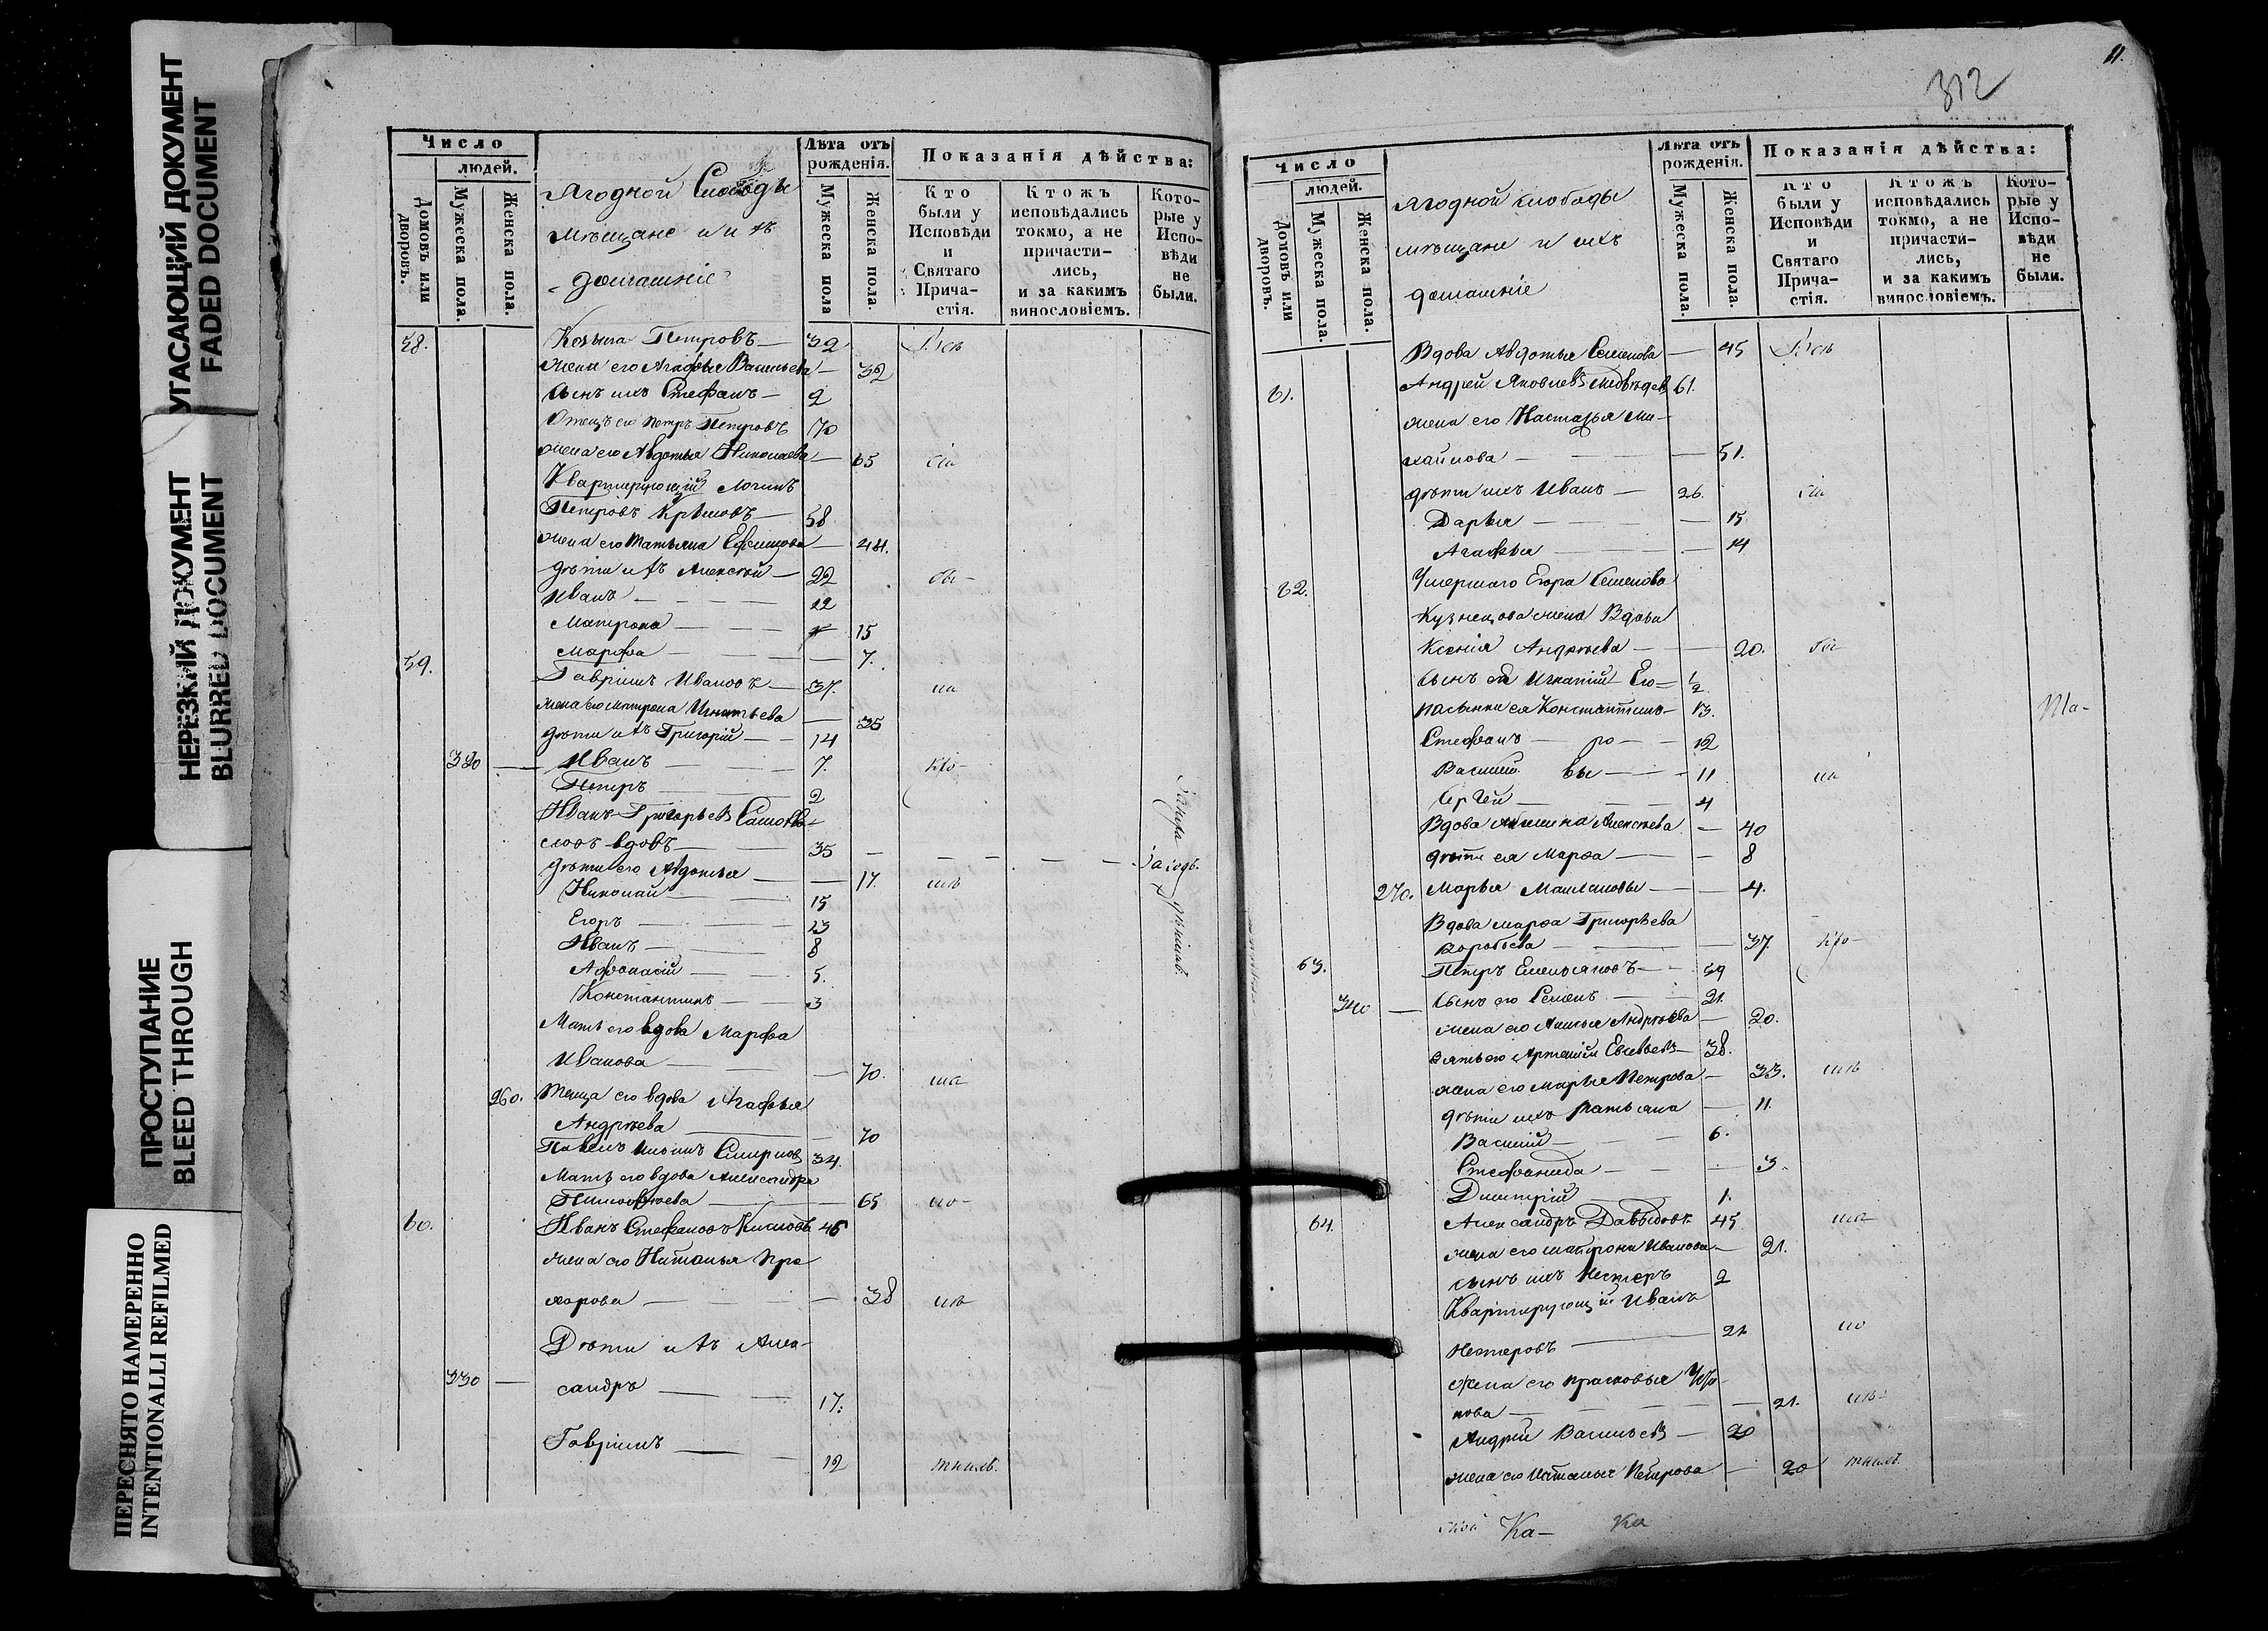 УГАСАЮЩИЙ ДОКУМЕНТ
FADED DOCUMENT
НЕРЕЗКИЙ ДОКУМЕНТ
BLURRED DOCUMENT
ПРОСТУПАНИЕ
BLEED THROUGH
ПЕРЕСНЯТО НАМЕРЕННО
INTENTIONALLI REFILMED
Число
людей.
Домовъ или дворовъ.
Мужеска пола.
Женска пола.
Ягодной Слободы
мѣщане и ихъ
домашніе
Лѣта отъ рожденія.
Мужеска пола
Женска пола.
Показанія дѣйства:
Кто были у Исповѣди и Святаго Прича-стія.
Ктожъ исповѣдались токмо, а не причасти-лись, и за какимъ винословіемъ.
Кото-рые у Испо-вѣди не были.
58. Козьма Петровъ 32
жена его Агафья Васильева 32
Сынъ ихъ Стефанъ 2
Отецъ его Петръ Петровъ 70
жена его Авдотья Николаева 65
Квартирующій Логинъ
Петровъ 58
жена его Татьяна Ефимова 48.
дѣти ихъ Алексѣй 22 бы-
Иванъ 12
Матрона 15
Марфа 7.
59. Гавріилъ Ивановъ 37. на
жена его Матрона Игнатьева 35
дѣти ихъ Григорій 14
320 Иванъ 7.
Петръ 2
Иванъ Григорьевъ
вдовъ 35
дѣти его Авдотья 17.
Николай 15
Егоръ 13
Иванъ 8
Афонасій 5.
Константинъ 3
Мать его вдова Марфа
Иванова 70.
260. Теща его вдова Агафья
Андрѣева 70
Павелъ Ильинъ Смирновъ 34.
Мать его вдова Александра
65
60. Иванъ Стефановъ 46
жена его Наталья Про
хорова 38
Дѣти ихъ Алек-
330 сандръ 17.
Гавріилъ 12
312
11.
Число
людей.
Домовъ или дворовъ.
Мужеска пола
Женска пола.
Ягодной слободы
мѣщане и ихъ
домашніе
Лѣта отъ рожденія.
Мужеска пола.
Женска пола.
Показанія дѣйства:
Кто были у Исповѣди и Святаго Прича-стія.
Ктожъ исповѣдались токмо, а не причасти-лись, и за какимъ винословіемъ.
Кото-рые у Испо-вѣди не были.
Вдова Авдотья Семенова 45
61. Андрей Яковлевъ Медвѣдев 61.
жена его Настасья Ми-
хайлова 51.
дѣти ихъ Иванъ 26.
Дарья 15
Агафья 14
62. Умершаго Егора Семенова
Кузнецова жена Вдова
Ксенія Андрѣева 20.
Сынъ ея Игнатій Его- 1/2
пасынки ея Константинъ 13.
Стефанъ ро 12
Василій вы 11
Сергѣй 4
Вдова Акилина Алексѣева 40
дѣти ея Марѳа 8
270. Марья 4.
Вдова Марѳа Григорьева
Воробьева 37.
63. Петръ Емельяновъ 59
340 Сынъ его Семенъ 21.
жена его Андрѣева 20.
зять его Евсевьевъ 38.
жена его Марья Петрова 33.
дѣти ихъ Татьяна 11.
Василій 6.
Стефанида 3.
Димитрій 1.
64. Александръ Давыдовъ 45
жена его Матрона Иванова 21.
сынъ ихъ Нестеръ 2
Квартирующій Иванъ
Нестеровъ 21
Жена его Прасковья
нова 21.
Андрей Васильевъ 20
жена его Наталья Петрова 20
Ка- Ка